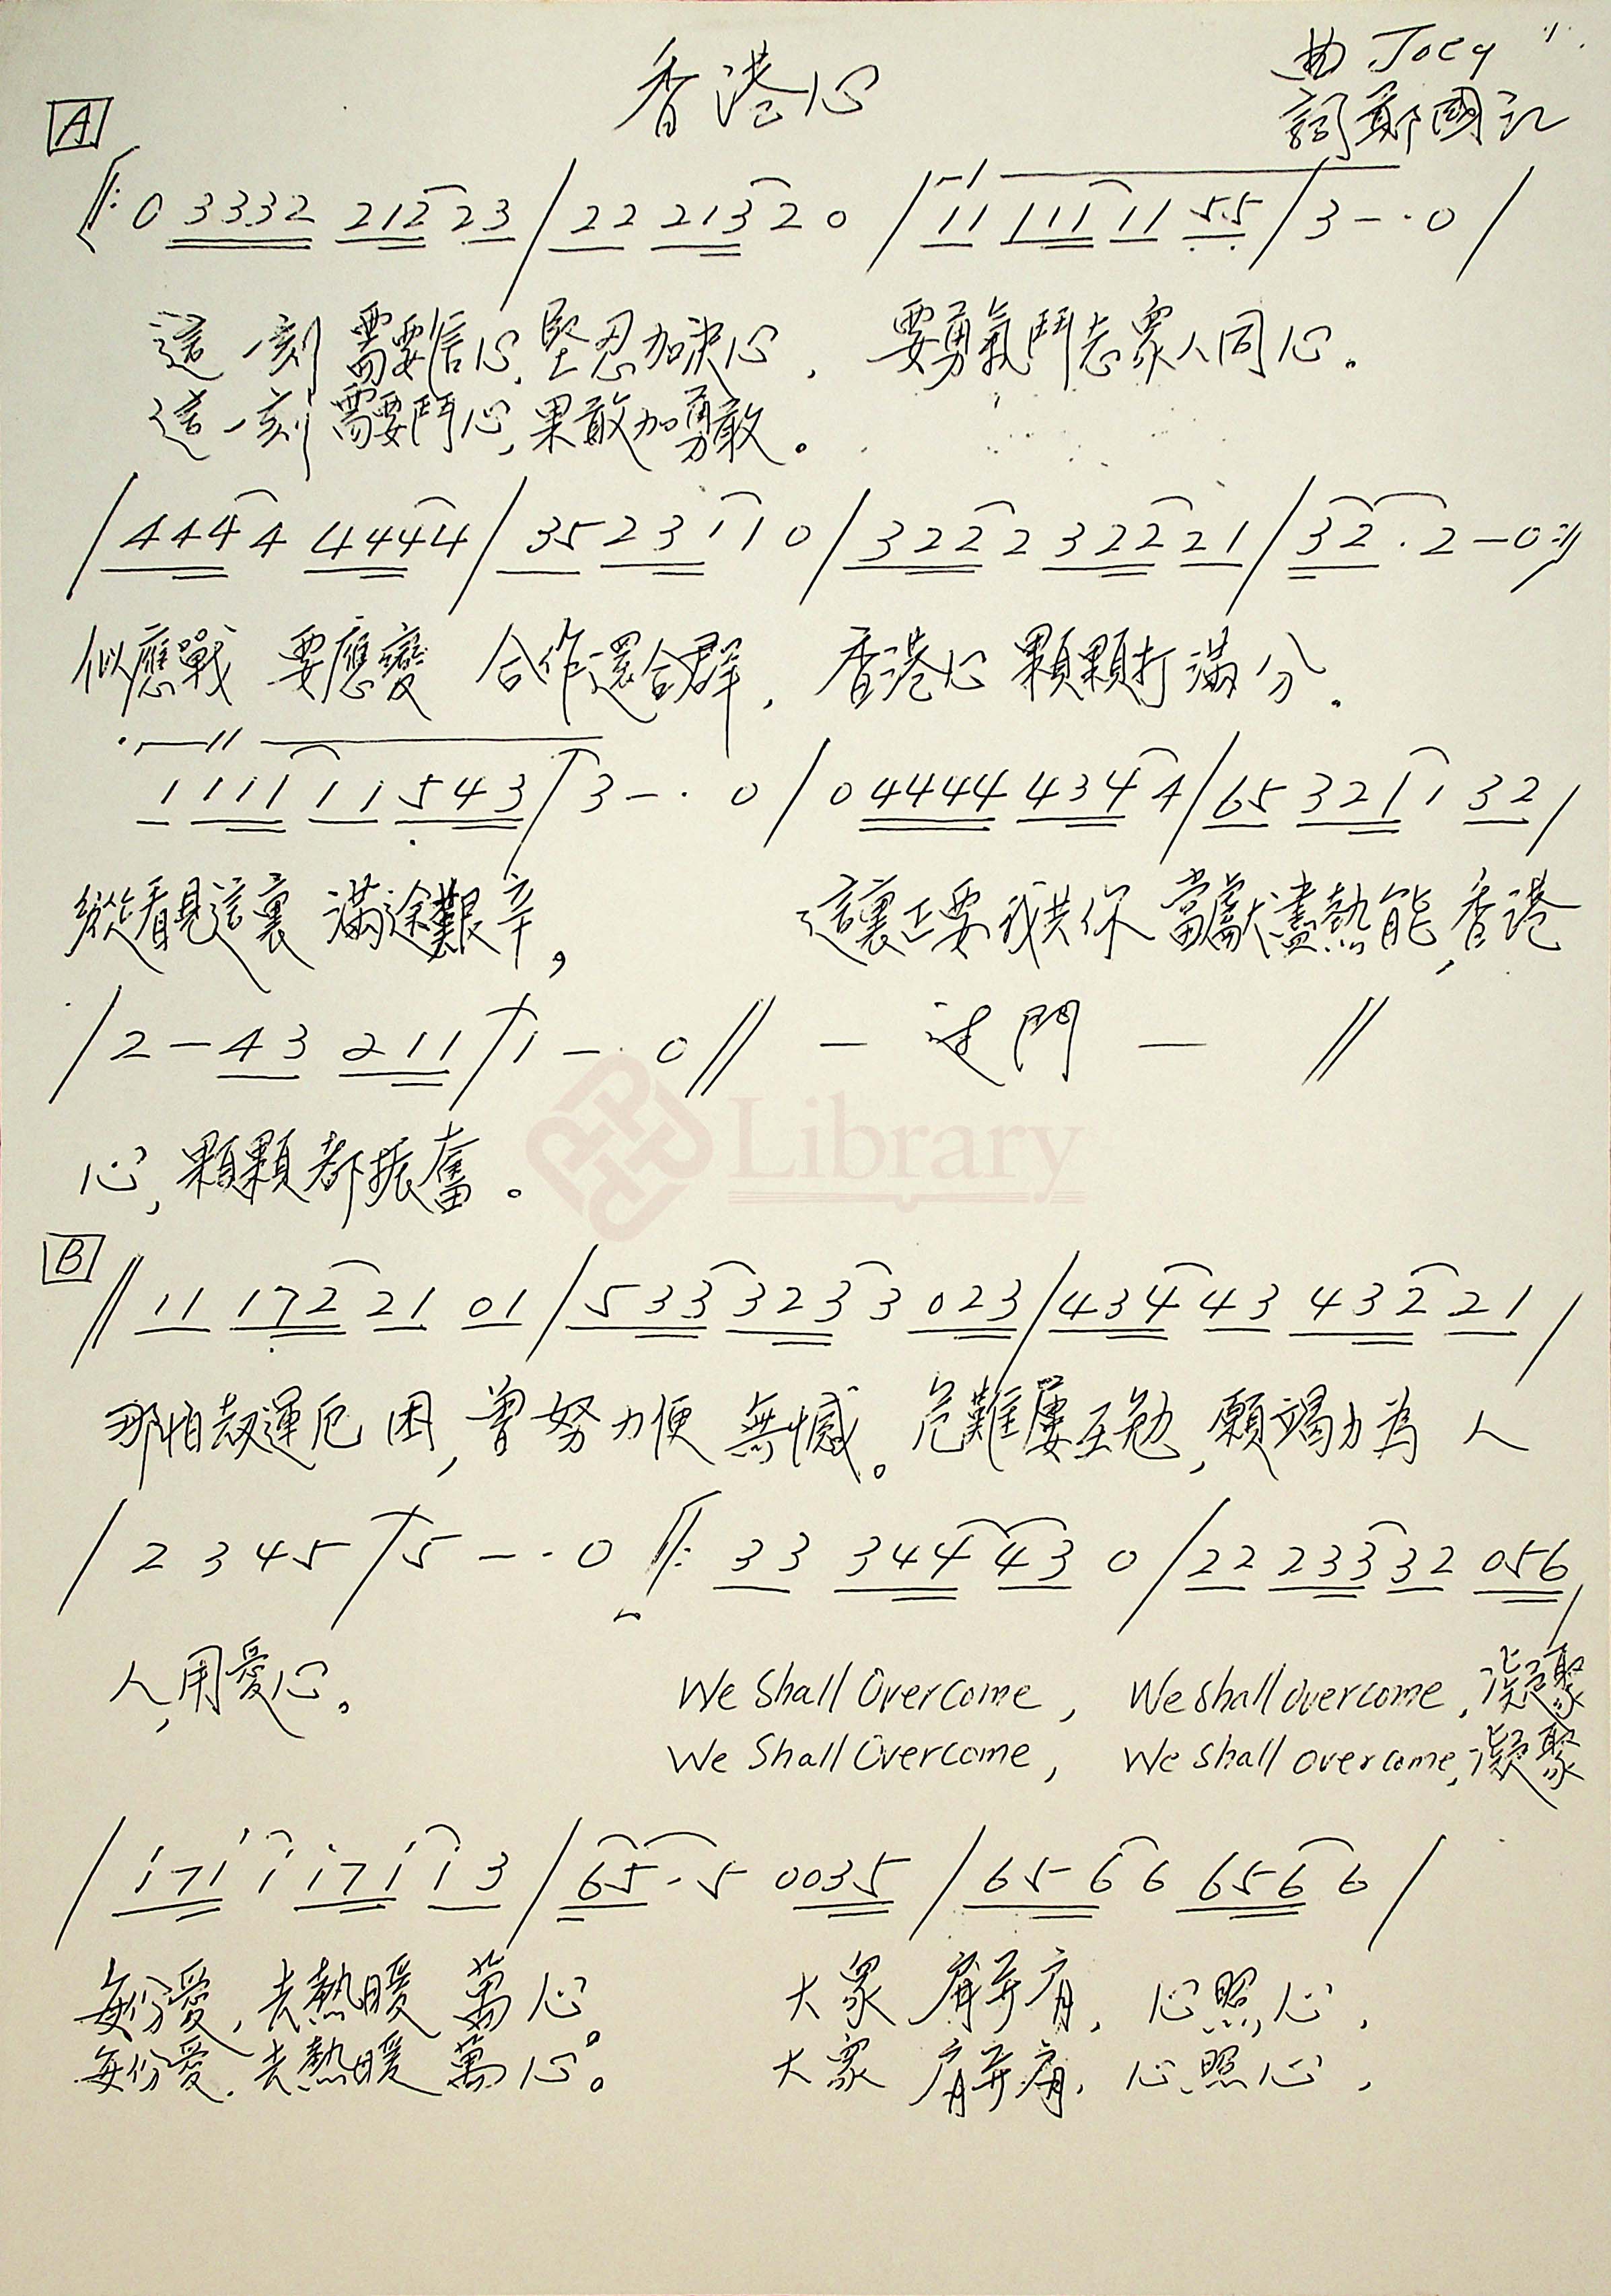 香港心
曲 Joey
詞 鄭國江
A
‖: 0 3332 212 23 / 22 213 2 0 / 11 111 11 55 / 3 - · 0 /
這一刻 需要信心,堅忍加決心, 要勇氣鬥志眾人同心。
這一刻 需要鬥心,果敢加勇敢。
/ 444 4 444 4 / 35 23 1 1 0 / 322 2 322 21 / 32 · 2 - 0 :‖
似應戰 要應變 合作還合群, 香港心 顆顆打滿分.
1 111 11 543 / 3 - · 0 / 0 4444 434 4 / 65 321 1 32 /
縱看見這裏 滿途艱辛, 這裏正要我共你 當獻盡熱能,香港
/ 2 - 43 211 / 1 - · 0 // — 過門 — //
心,顆顆都振奮。
Library
B
// 11 172 21 01 / 533 323 3 023 / 434 43 432 21 /
那怕, 運厄困,曾努力便 無憾。危難屢互勉,願竭力為 人
/ 2 3 4 5 / 5 - - · 0 ‖: 33 344 43 0 / 22 233 32 056 /
人,用愛心。 We Shall Overcome, We shall overcome, 凝聚
We Shall Overcome, We shall overcome, 凝聚
/ i7i i i7i i 3 / 65 · 5 0035 / 656 6 656 6 /
每份愛,去熱暖 萬心。 大眾 肩并肩, 心照心,
每份愛,去熱暖 萬心。 大眾 肩并肩, 心照心,